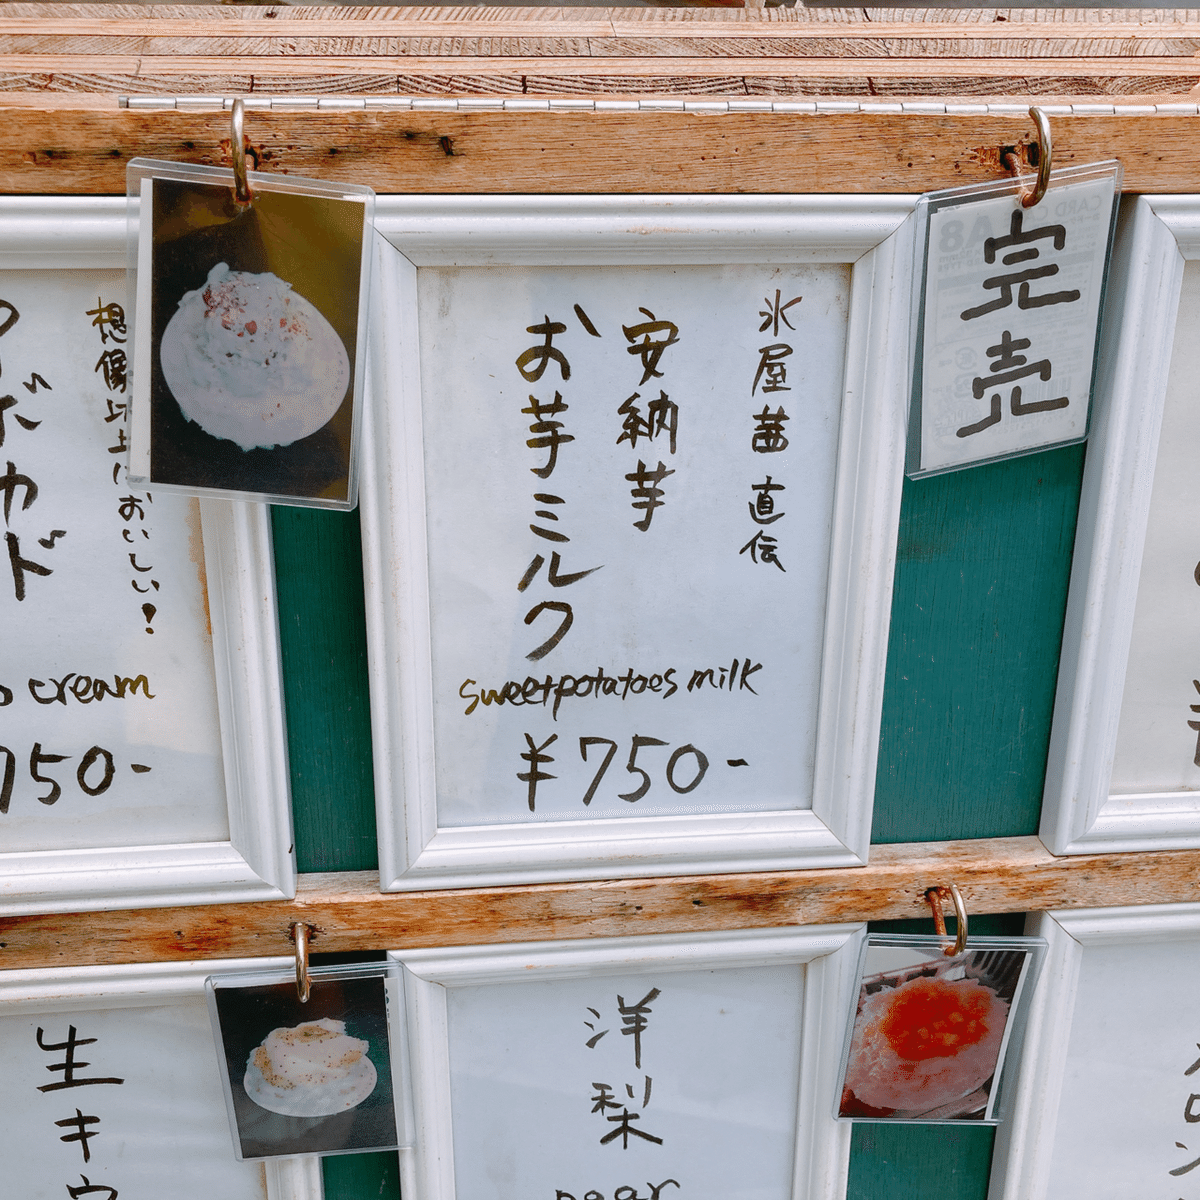 氷屋茜 直伝
安納芋
お芋ミルク
sweetpotatoes milk
¥750-
完売
想像以上においしい!
ボカド
cream
750-
生キウ
洋梨
pear
ロン